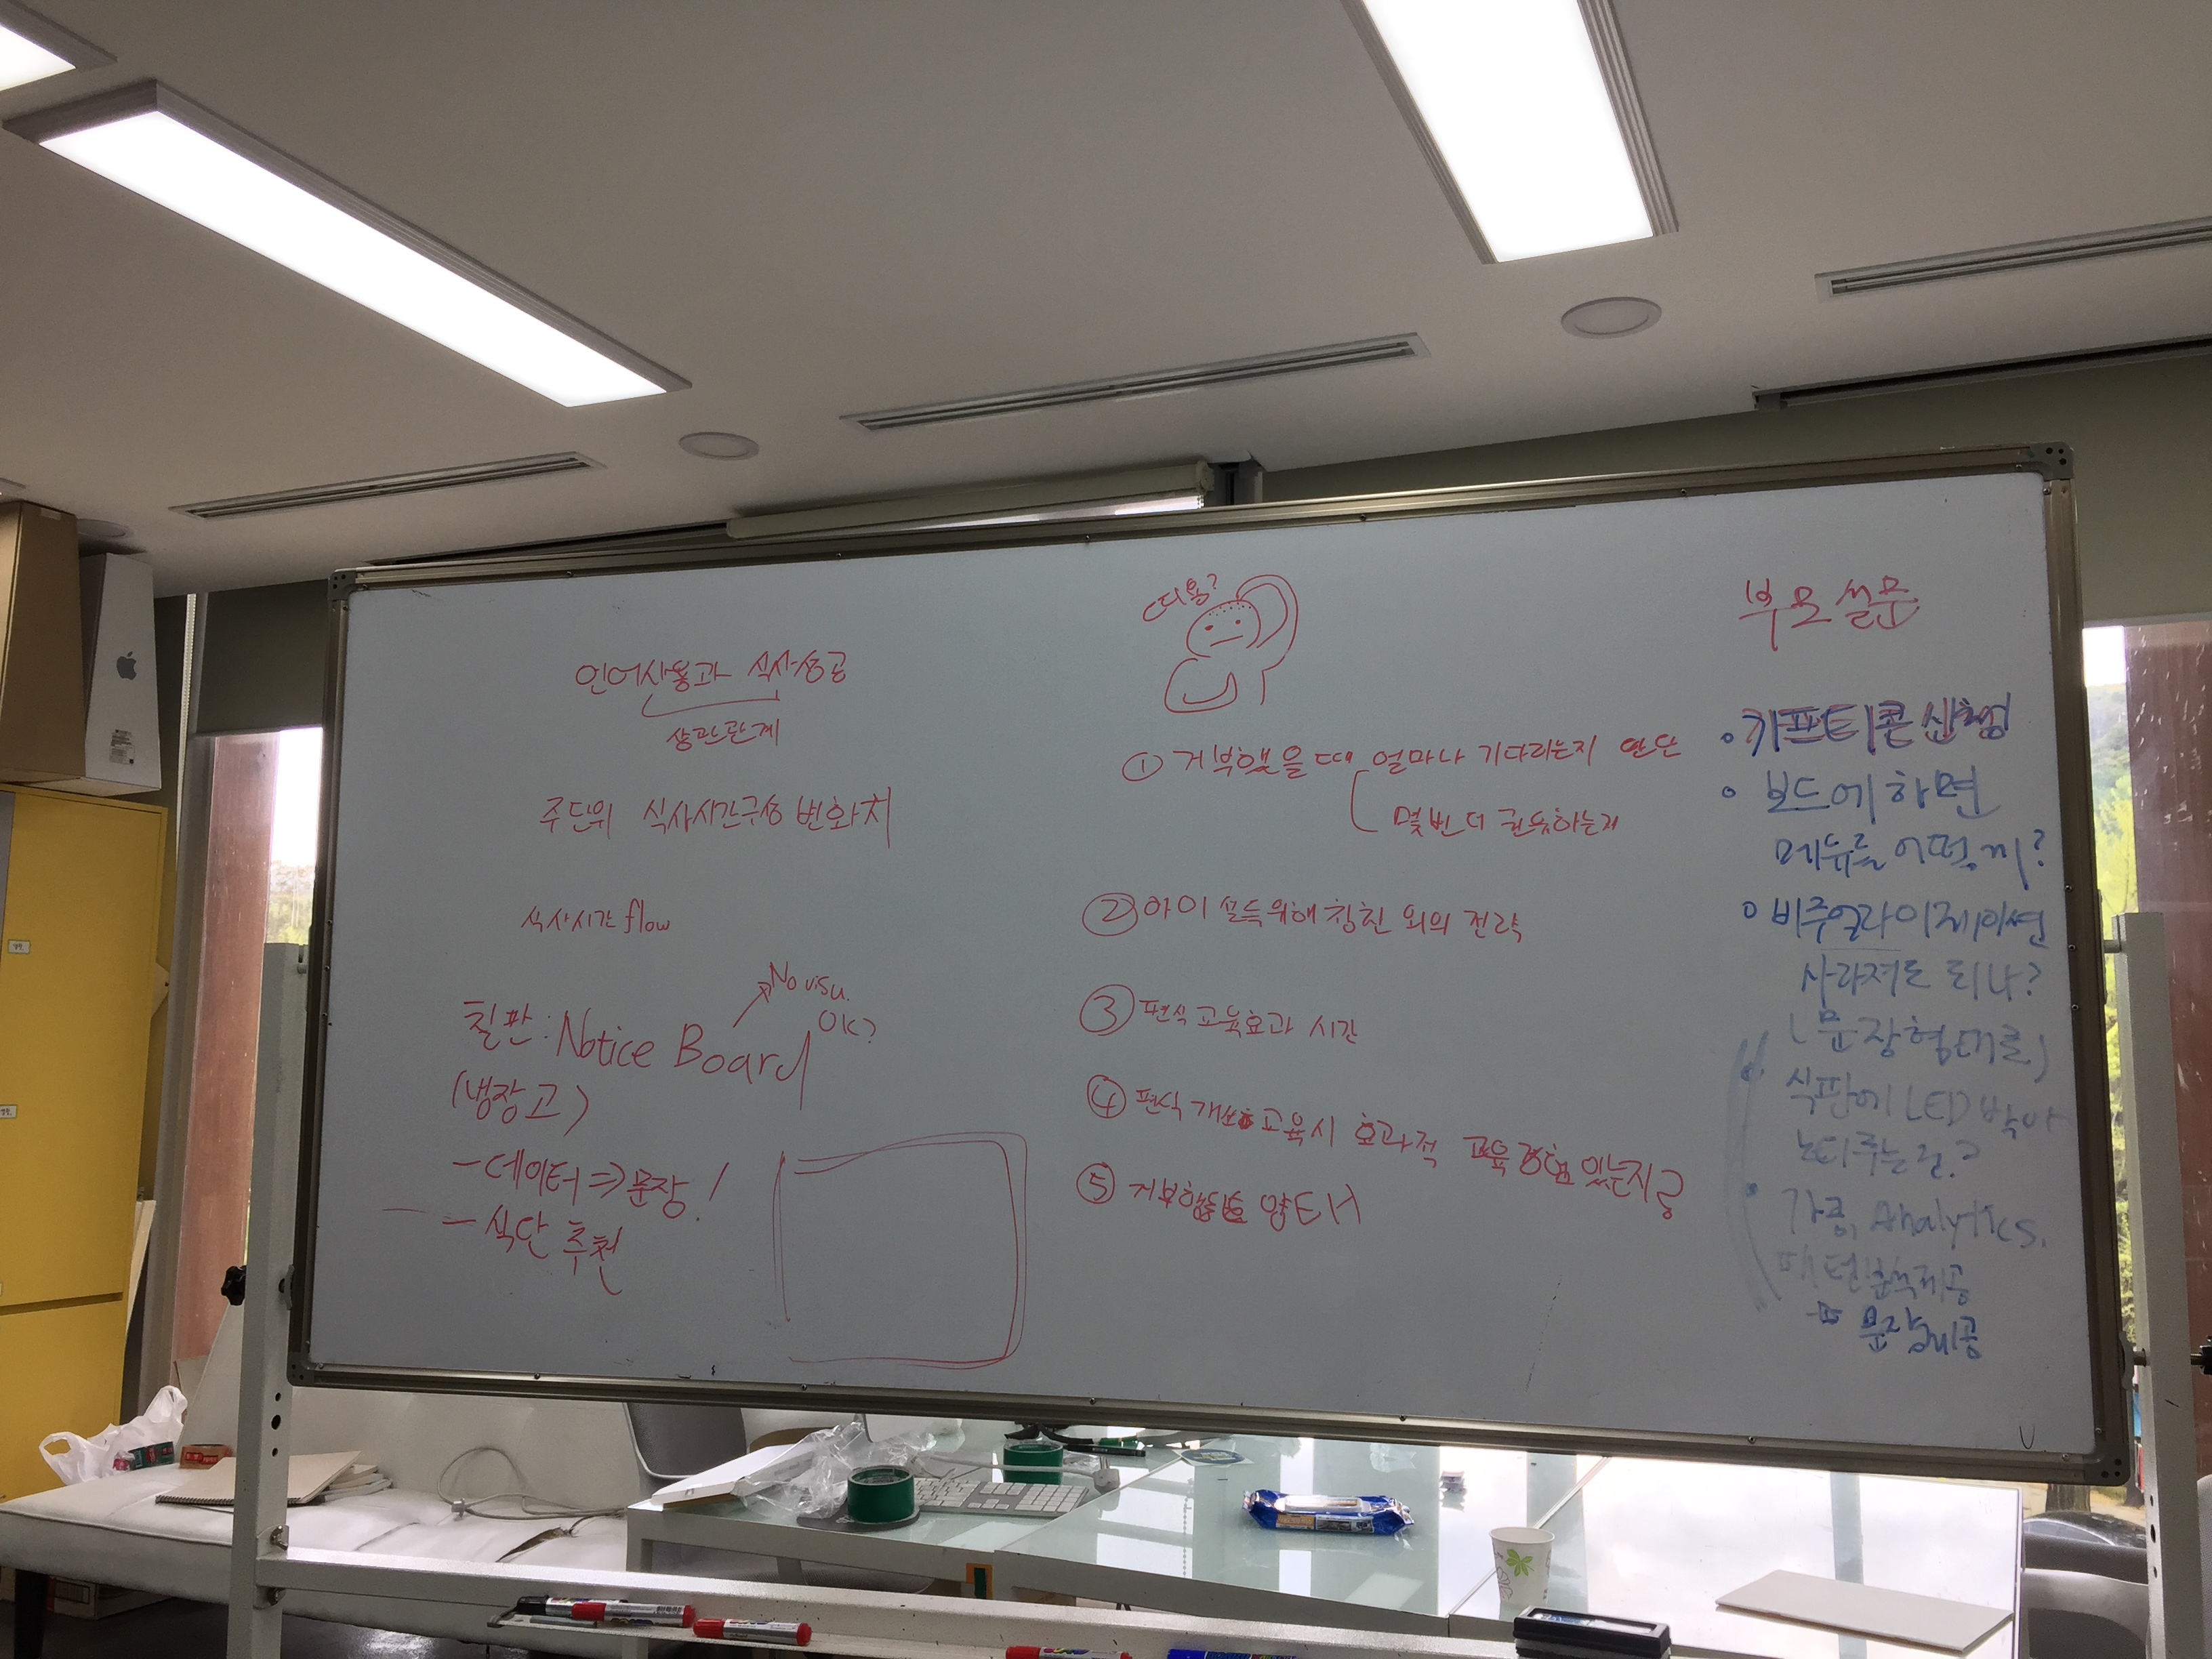 언어사용과 식사성공
상관관계
주단위 식사시간구성 변화치
식사시간 flow
칠판 : Notice Board
No visu.
OK?
(냉장고)
- 데이터 ⇒ 문장!
- 식단 추천
띠용?
① 거부했을 때 얼마나 기다리는지 판단
몇번 더 권유하는지
② 아이 설득위해 칭찬 외의 전략
③ 편식 교육효과 시간
④ 편식 개선 교육시 효과적 교육경험 있는지?
⑤
부모 설문
기프티콘 신청
보드에 하면
메뉴를 어떻게?
비주얼라이제이션
사라져도 되나?
(문장형태로)
식판에 LED 박아
Analytics,
패턴분석제공
문장제공